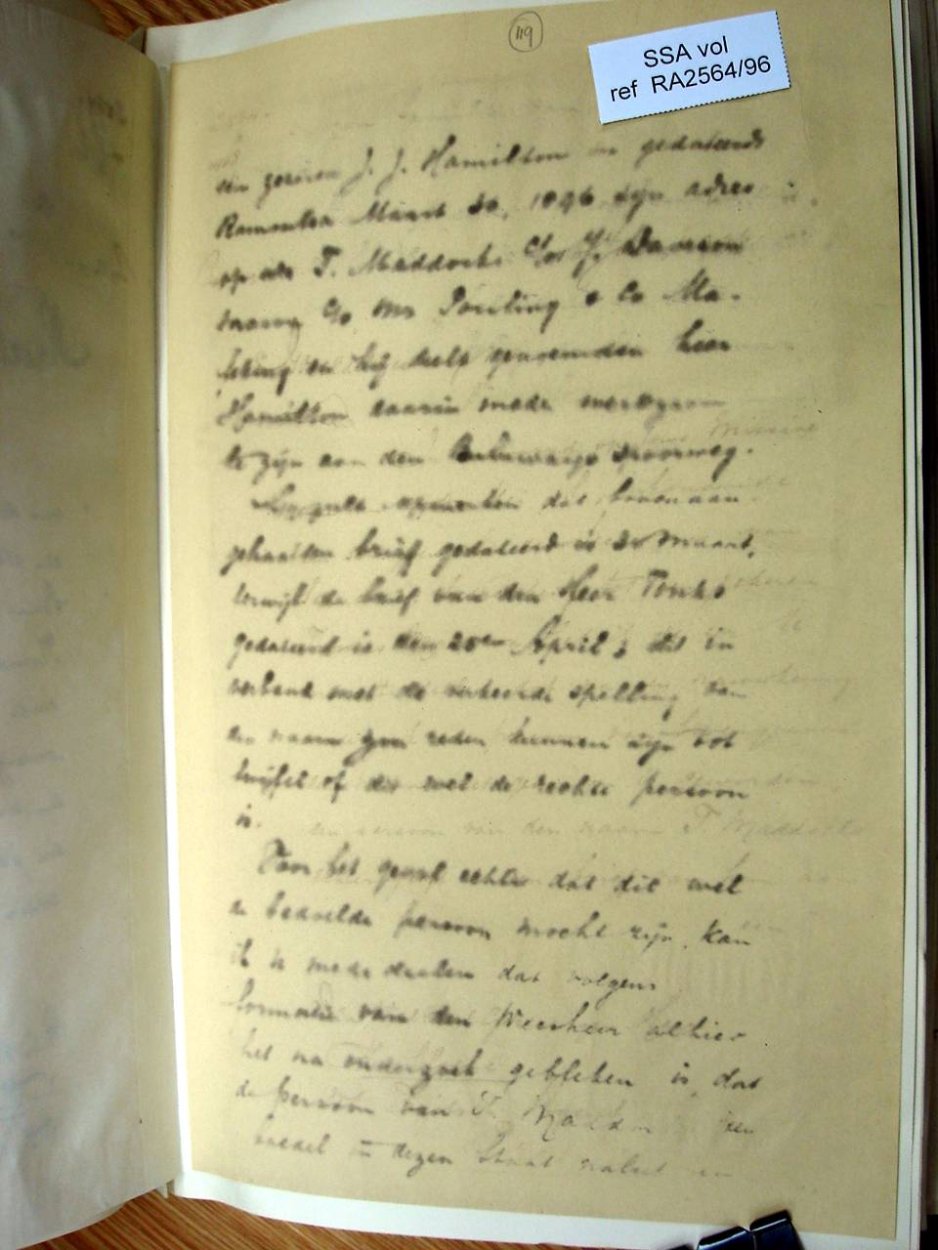 119
SSA vol
ref RA2564/96
een zekeren J. J. Hamilton en gedateerd
Ramoutsa Maart 30, 1896 zijn adres
op als T. Maddocks c/o J. Dawson
c/o Mr Ponting & Co Ma-
feking en hij
Hamilton daarin mede werkzaam
te zijn aan den Buluwayo spoorweg.
dat bovenaan
gehaalden brief gedateerd is 30 Maart,
terwijl de brief van den Heer Tonks
gedateerd is den 20en April; dit in
verband met de verkeerde spelling van
den naam zou reden kunnen zijn tot
twijfel of dit wel de rechte persoon
is.
Voor het geval echter dat dit wel
de bedoelde persoon mocht zijn, kan
ik u mede deelen dat volgens
formatie van den Weesheer alhier
het na onderzoek gebleken is, dat
de persoon van T.
boedel in dezen Staat